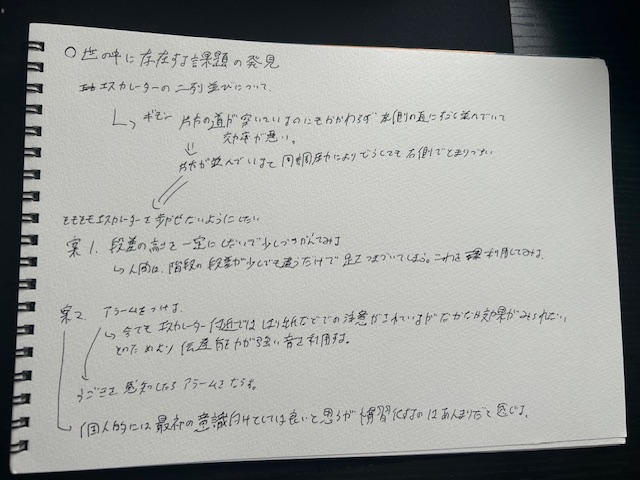 ○世の中に存在する課題の発見
エスカレーターの二列並びについて、
↳ ギモン 片方の道が空いているのにもかかわらず 左側の道にずらっと並んでいて
効率が悪い。
⇓
片方が並んでいると同調圧力によりどうしても右側でとまりづらい
そもそもエスカレーターを歩かせないようにしたい
案1. 段差の高さを一定にしないで少しづつかえてみる
↳人間は、階段の段差が少しでも違うだけで足をつまづいてしまう。これを利用してみる。
案2. アラームをつける。
↳今でもエスカレーター付近でははり紙などでの注意がされているがなかなか効果がみられない
そのためより伝達能力が強い音を利用する。
うごきを感知したらアラームをならす。
個人的には最初の意識向けとしては良いと思うが慣習化するのはあんまりだと感じる。